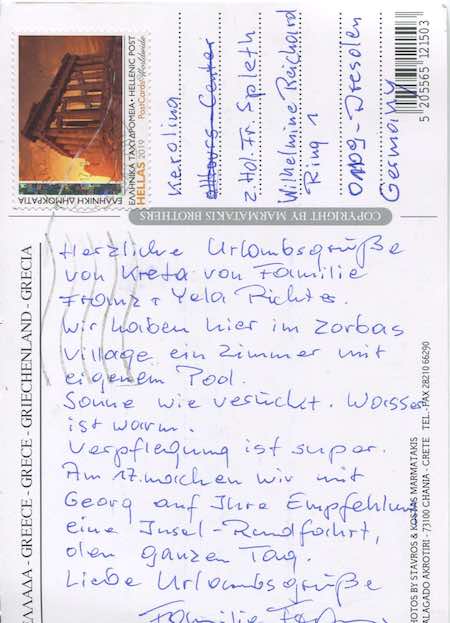 ΕΛΛΗΝΙΚΗ ΔΗΜΟΚΡΑΤΙΑ
ΕΛΛΗΝΙΚΑ ΤΑΧΥΔΡΟΜΕΙΑ • HELLENIC POST
HELLAS 2019
PostCards Worldwide
Keroling
Allours-Center
z.Hd. Fr. Spleth
Wilhelmine Reichard
Ring 1
01109-Dresden
Germany
5 205565 121503
COPYRIGHT BY MARMATAKIS BROTHERS
Herzliche Urlaubsgrüße
von Kreta von Familie
Franz + Yela Richter.
Wir haben hier im Zorbas
Village ein Zimmer mit
eigenem Pool.
Sonne wie verückt. Wasser
ist warm.
Verpflegung ist super.
Am 17. machen wir mit
Georg auf Ihre Empfehlung
eine Insel-Rundfahrt,
den ganzen Tag.
Liebe Urlaubsgrüße
Familie
ΕΛΛΑΔΑ - GREECE - GRECE - GRIECHENLAND - GRECIA
PHOTOS BY STAVROS & KOSTAS MARMATAKIS
KALAGADO AKROTIRI - 73100 CHANIA - CRETE TEL. - FAX 28210 66290